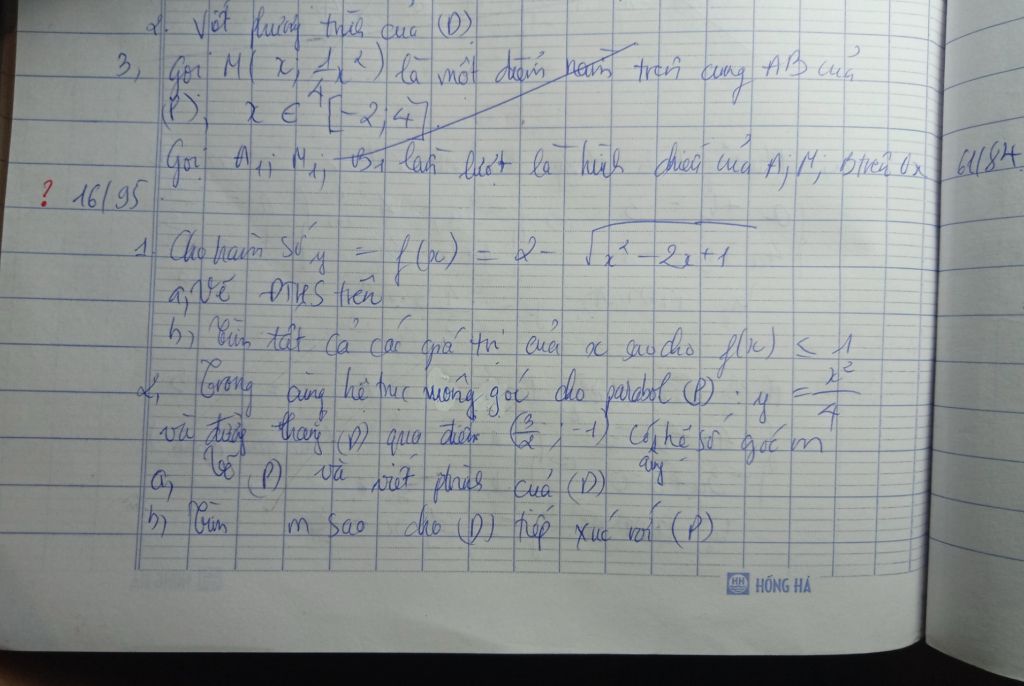 2. Viết phương trình của (D)
3, Gọi M( x; 1/4 x²) là một điểm nằm trên cung AB của
(P), x ∈ [-2; 4]
Gọi A₁; M₁; B₁ lần lượt là hình chiếu của A; M; B trên Ox 61/84
? 16/95
1. Cho hàm số y = f(x) = 2 - √(x² - 2x + 1)
a, Vẽ ĐTHS trên
b, Tìm tất cả các giá trị của x sao cho f(x) ≤ 1
2, Trong cùng hệ trục vuông góc cho parabol (P) : y = x²/4
và đường thẳng (D) qua điểm (3/2; -1) có hệ số góc m
a, Vẽ (P) và viết ptrình của (D)
b, Tìm m sao cho (D) tiếp xúc với (P)
HH HỒNG HÀ